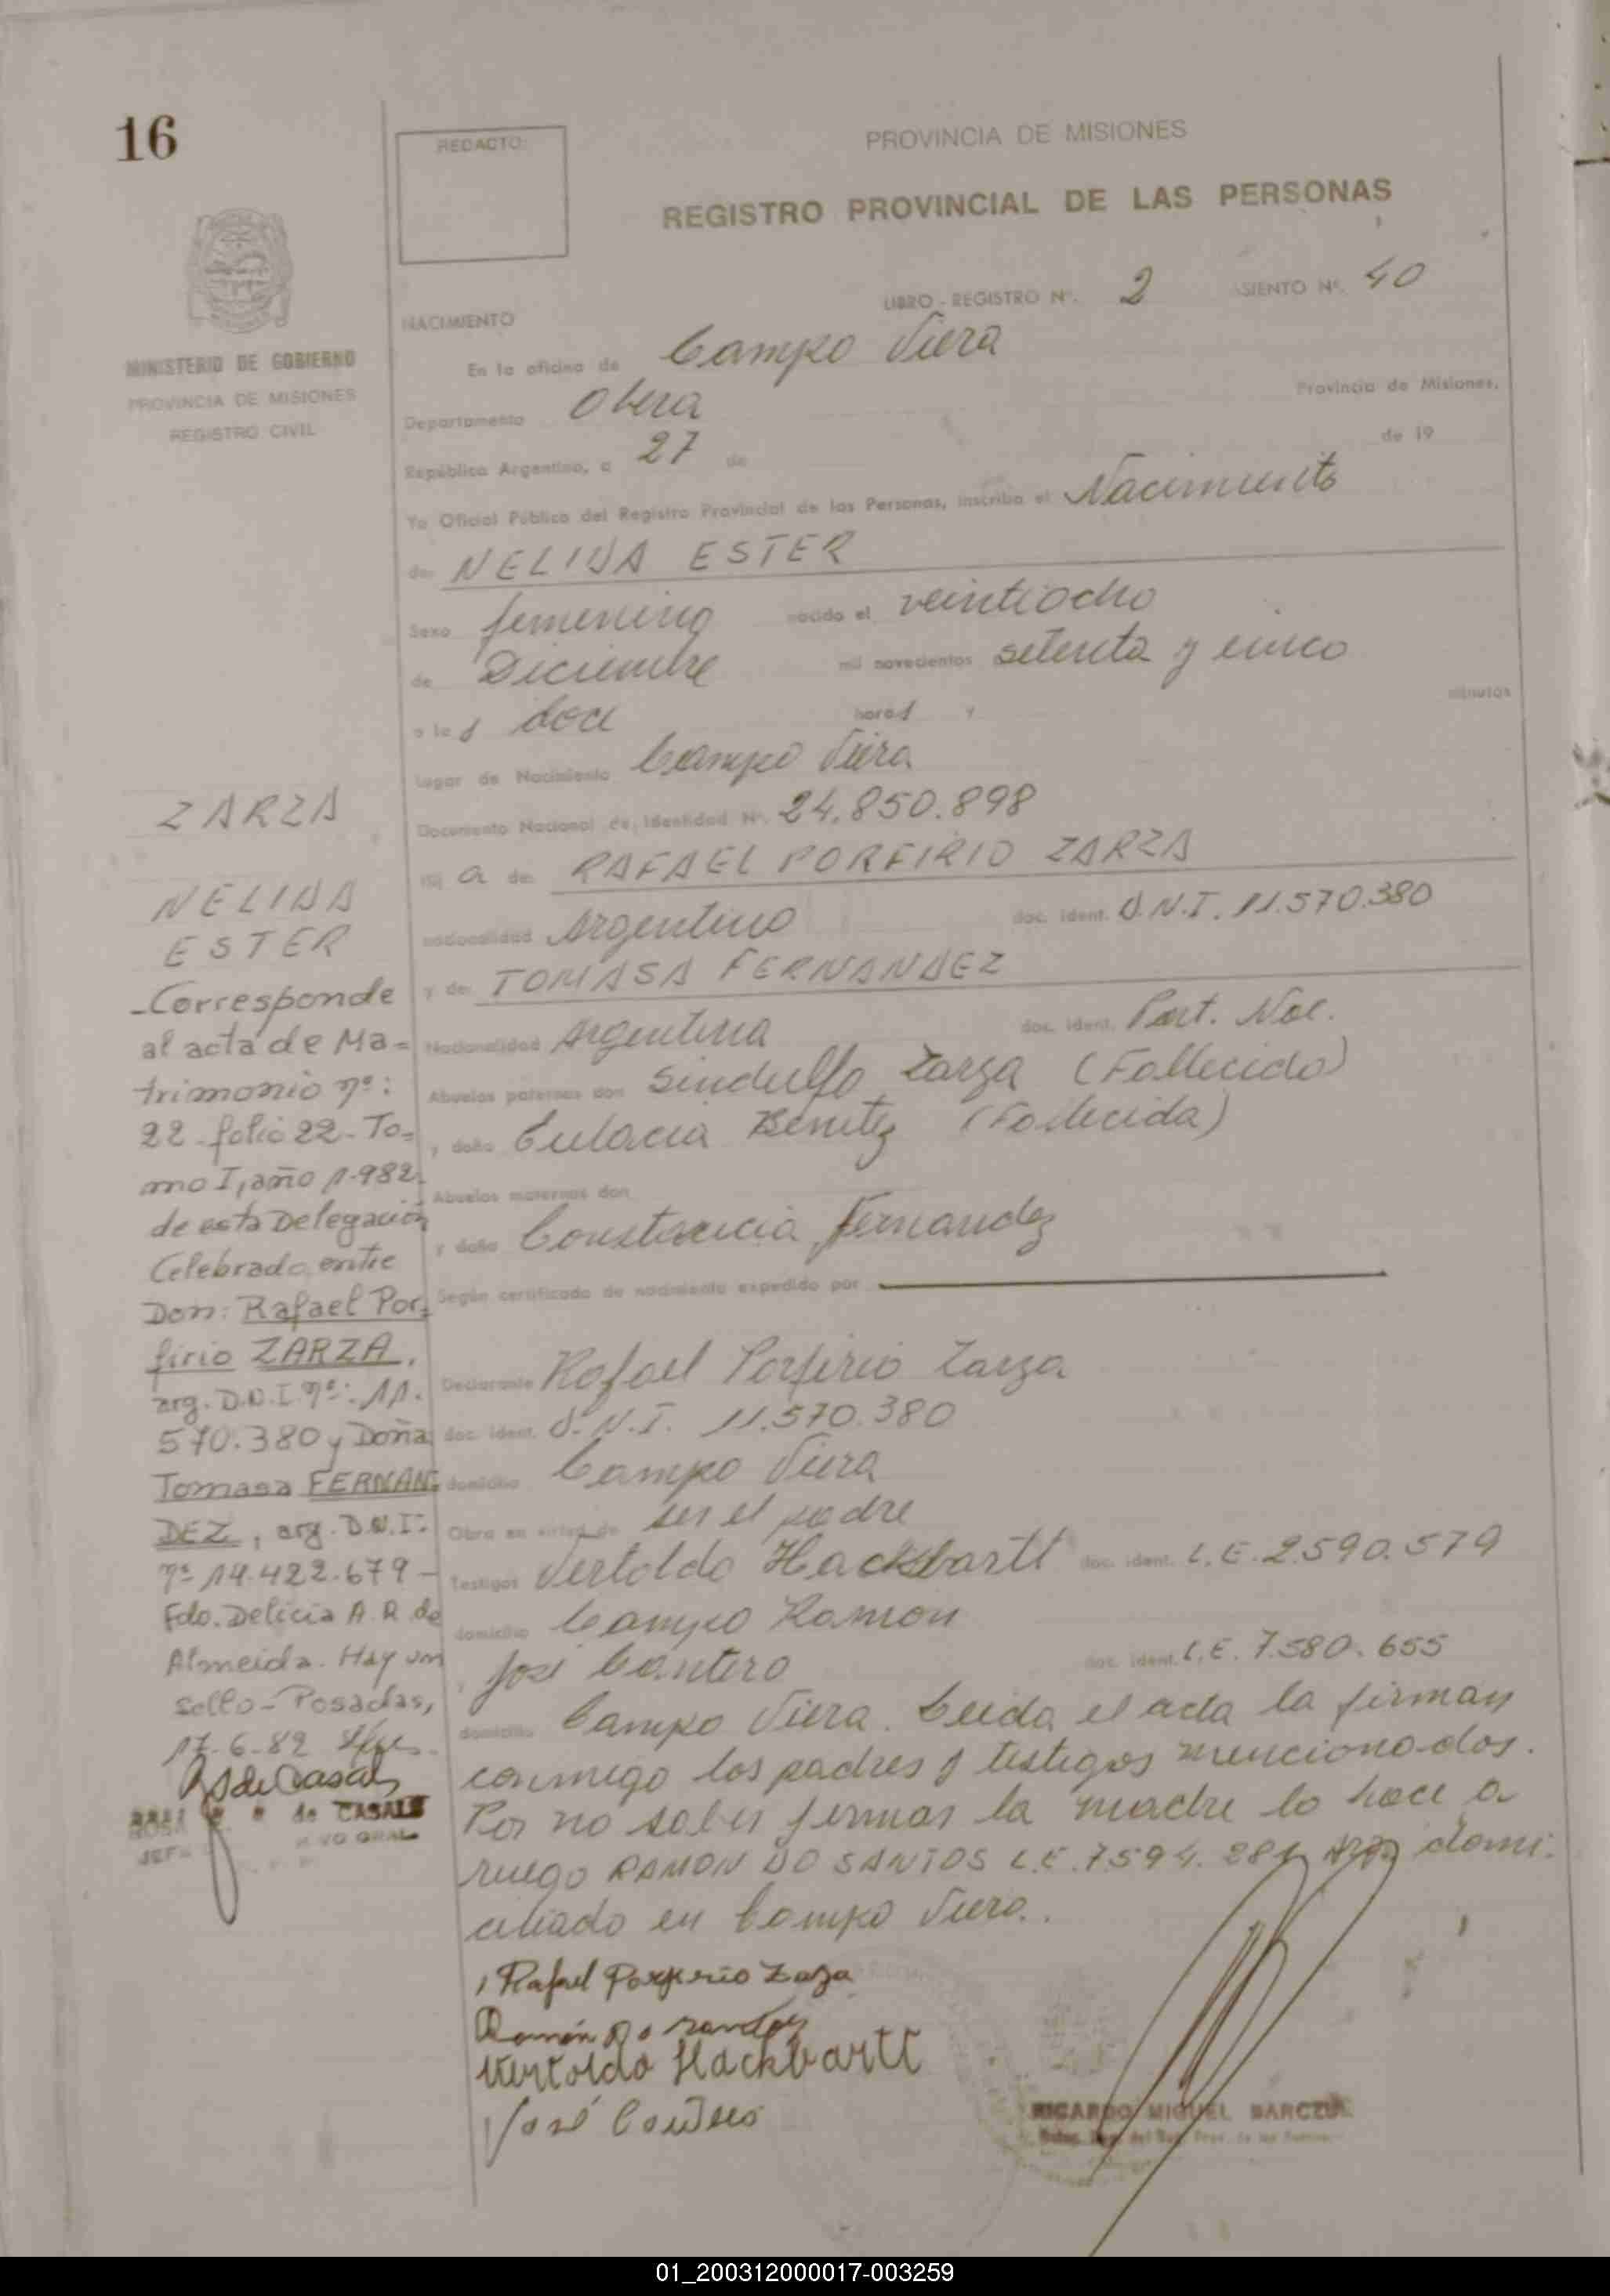 16
REDACTO:
PROVINCIA DE MISIONES
REGISTRO PROVINCIAL DE LAS PERSONAS
LIBRO - REGISTRO Nº. 2 ASIENTO Nº. 40
NACIMIENTO
MINISTERIO DE GOBIERNO
PROVINCIA DE MISIONES
REGISTRO CIVIL
En la oficina de Campo Viera
Departamento Obera Provincia de Misiones,
República Argentina, a 27 de de 19
Yo Oficial Público del Registro Provincial de las Personas, inscribo el Nacimiento
de NELIDA ESTER
Sexo femenino nacido el veintiocho
de Diciembre mil novecientos setenta y cinco
a las doce horas y minutos
lugar de Nacimiento Campo Viera
Documento Nacional de Identidad Nº. 24.850.898
hij a de RAFAEL PORFIRIO ZARZA
nacionalidad Argentino doc. ident. D.N.I. 11.570.380
y de TOMASA FERNANDEZ
Nacionalidad Argentina doc. ident. Part. Nac.
Abuelos paternos don Sindulfo Zarza (Fallecido)
y doña Eulacia Benitez (Fallecida)
Abuelos maternos don
y doña Constancia Fernandez
Según certificado de nacimiento expedido por
Declarante Rafael Porfirio Zarza
doc. ident. D.N.I. 11.570.380
domicilio Campo Viera
Obra en virtud de ser el padre
Testigos Vertoldo Hackbartt doc. ident. L.E. 2.590.579
domicilio Campo Ramon
y José Cantero doc. ident. L.E. 7.580.655
domicilio Campo Viera. Leida el acta la firman
conmigo los padres y testigos mencionados.
Por no saber firmar la madre lo hace a
ruego RAMON DO SANTOS L.E. 7594.281 Arg. domi-
ciliado en Campo Viera.
Rafael Porfirio Zarza
Ramón Do Santos
Vertoldo Hackbartt
José Cantero
RICARDO MIGUEL BARCZUK
ZARZA
NELIDA
ESTER
-Corresponde
al acta de Ma=
trimonio nº:
22-folio 22-To=
mo I, año 1.982.
de esta Delegación
Celebrado entre
Don: Rafael Por-
firio ZARZA,
arg. D.N.I. nº: 11.
570.380 y Doña
Tomasa FERNAN-
DEZ, arg. D.N.I.
nº 14.422.679-
Fdo. Delicia A. R. de
Almeida. Hay un
sello-Posadas,
17-6-82
R S de Casals
ROSA de CASALS
JEFA
01_200312000017-003259